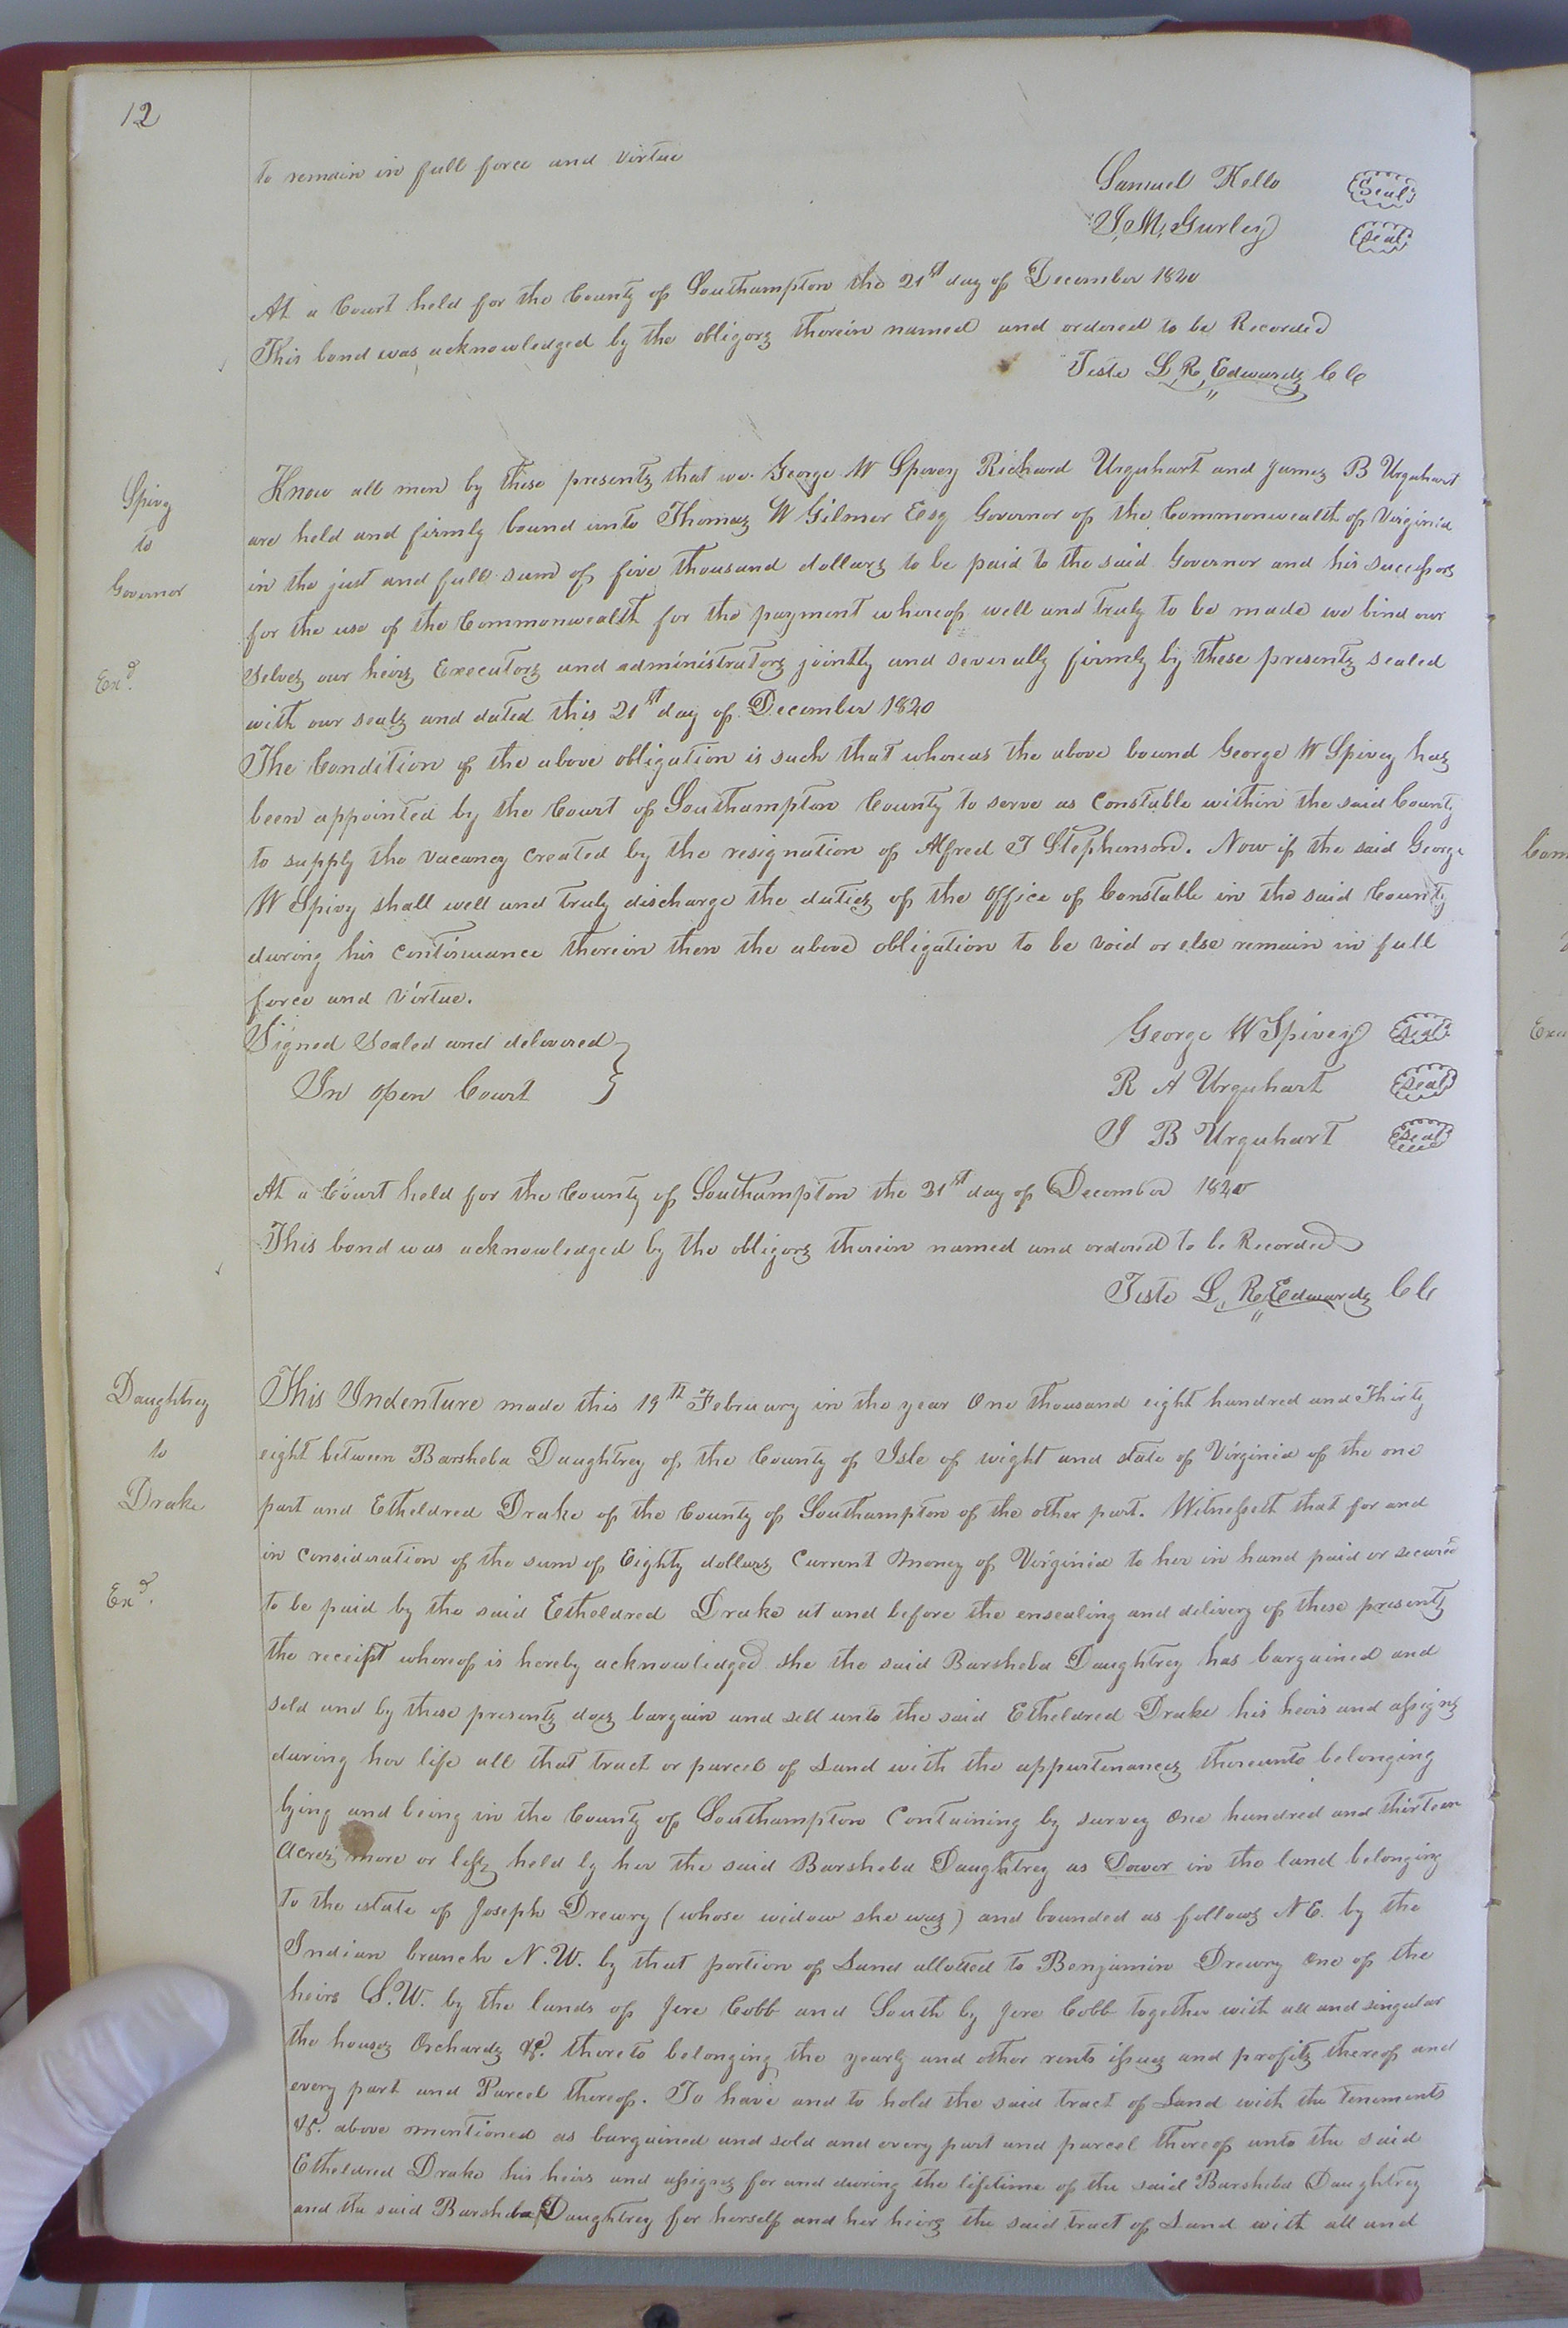 12
to remain in full force and virtue
Samuel Kello Seal
J. M. Gurley Seal
At a Court held for the County of Southampton the 21st day of December 1840
This bond was acknowledged by the obligors therein named and ordered to be Recorded
Teste L. R. Edwards CC
Spivy
to
Governor
Exd.
Know all men by these presents that we George W Spivey Richard Urquhart and James B Urquhart
are held and firmly bound unto Thomas W Gilmer Esq Governor of the Commonwealth of Virginia
in the just and full sum of five thousand dollars to be paid to the said Governor and his successors
for the use of the Commonwealth for the payment whereof well and truly to be made we bind our
selves our heirs Executors and administrators jointly and severally firmly by these presents sealed
with our seals and dated this 21st day of December 1840
The Condition of the above obligation is such that whereas the above bound George W Spivey has
been appointed by the Court of Southampton County to serve as Constable within the said County
to supply the vacancy created by the resignation of Alfred J Stephenson. Now if the said George
W Spivy shall well and truly discharge the duties of the office of Constable in the said County
during his continuance therein then the above obligation to be void or else remain in full
force and Virtue.
Signed Sealed and delivered
In open Court
George W Spivey Seal
R A Urquhart Seal
J B Urquhart Seal
At a Court held for the County of Southampton the 21st day of December 1840
This bond was acknowledged by the obligors therein named and ordered to be Recorded
Teste L. R. Edwards CC
Daughtrey
to
Drake
Exd.
This Indenture made this 19th February in the year One thousand eight hundred and Thirty
eight between Barsheba Daughtrey of the County of Isle of wight and state of Virginia of the one
part and Etheldred Drake of the County of Southampton of the other part. Witnesseth that for and
in consideration of the sum of Eighty dollars Current money of Virginia to her in hand paid or secured
to be paid by the said Etheldred Drake at and before the ensealing and delivery of these presents
the receipt whereof is hereby acknowledged she the said Barsheba Daughtrey has bargained and
sold and by these presents does bargain and sell unto the said Etheldred Drake his heirs and assigns
during her life all that tract or parcel of Land with the appurtenances thereunto belonging
lying and being in the County of Southampton Containing by survey One hundred and thirteen
Acres more or less held by her the said Barsheba Daughtrey as Dower in the land belonging
to the estate of Joseph Drewry (whose widow she was) and bounded as follows N E. by the
Indian branch N. W. by that portion of Land allotted to Benjamin Drewry one of the
heirs S. W. by the lands of Jere Cobb and South by Jere Cobb together with all and singular
the houses Orchards &c. thereto belonging the yearly and other rents issues and profits thereof and
every part and Parcel thereof. To have and to hold the said tract of Land with the tenements
&c. above mentioned as bargained and sold and every part and parcel thereof unto the said
Etheldred Drake his heirs and assigns for and during the lifetime of the said Barsheba Daughtrey
and the said Barsheba Daughtrey for herself and her heirs the said tract of Land with all and